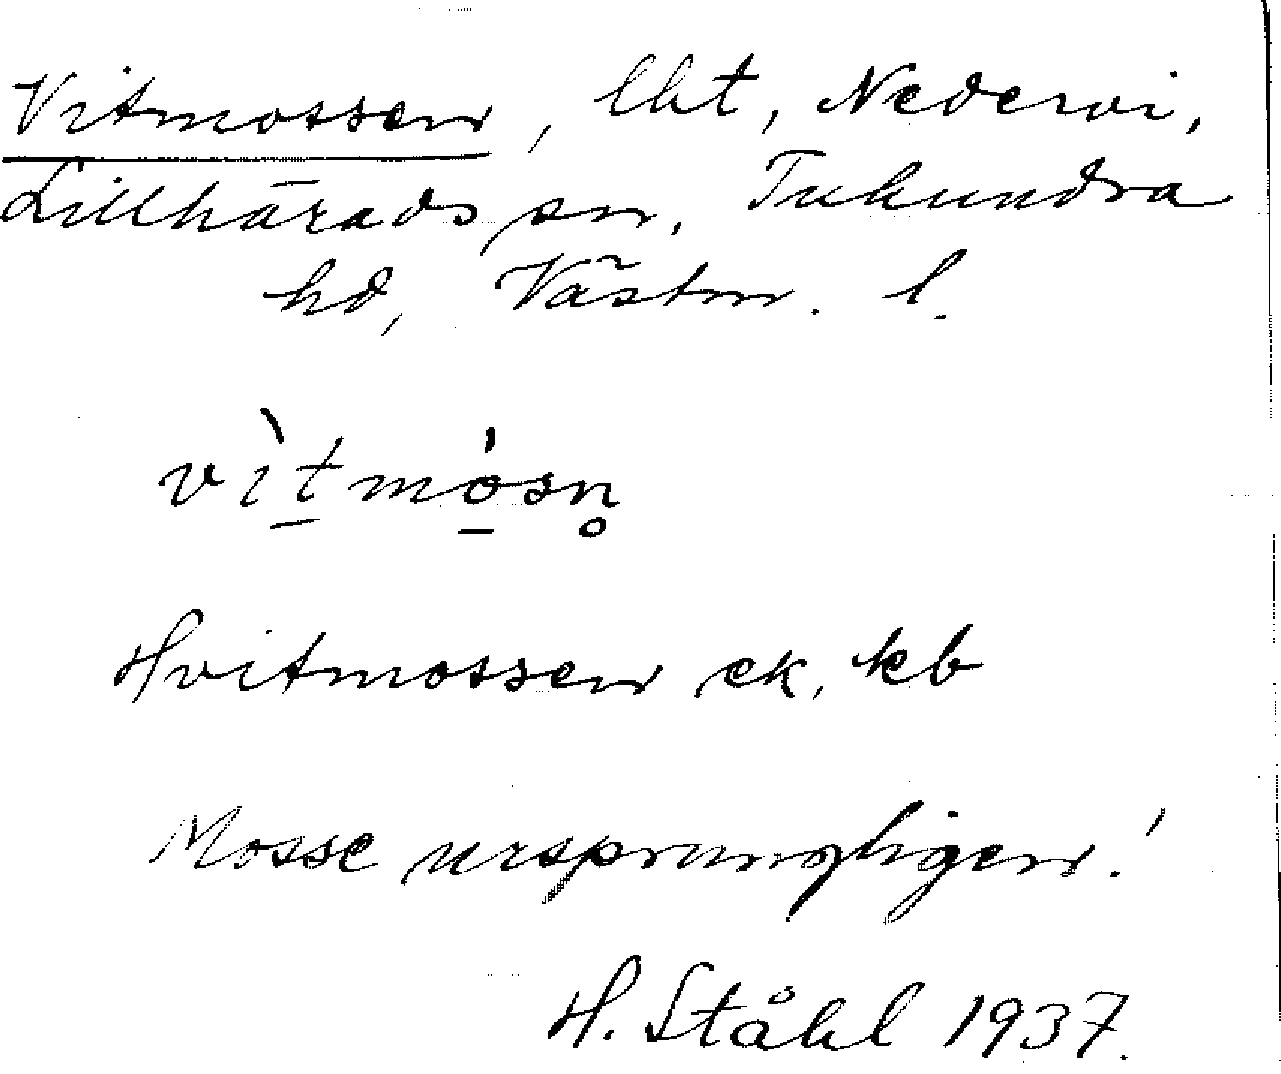 Vitmossen, lht, Nedervi,
Lillhärads sn, Tuhundra
hd, Västm. l.
vìt̲mó̲sn̥
Hvitmossen ek. kb
Mosse ursprungligen!
H. Ståhl 1937.